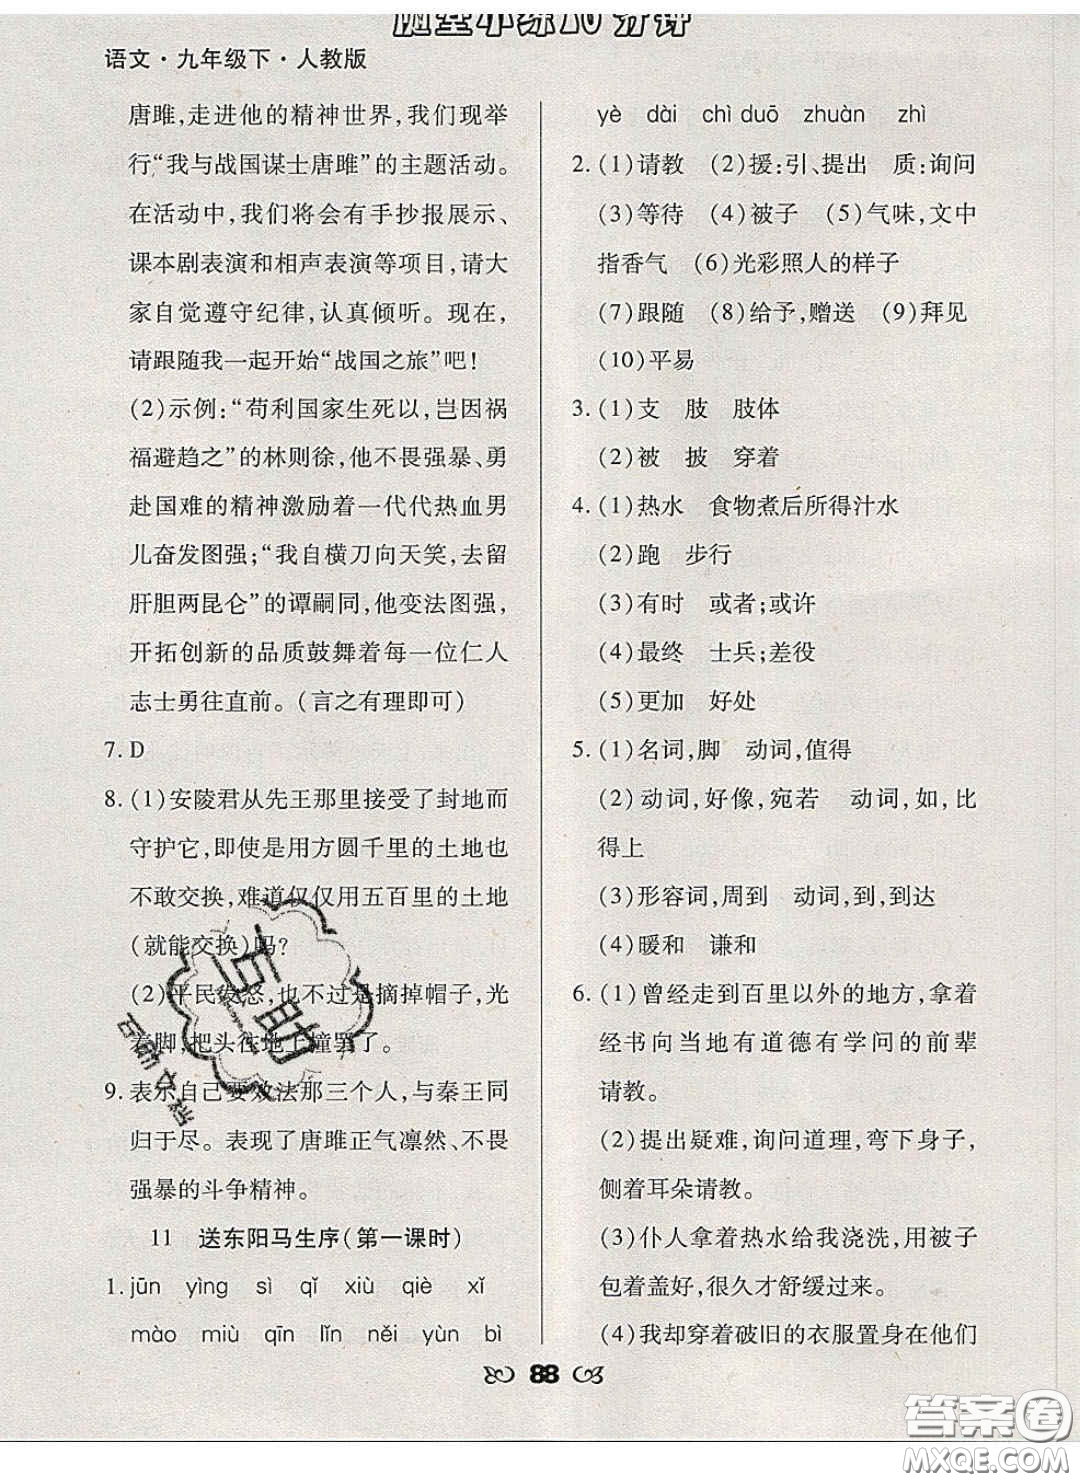 随堂小练10分钟
语文·九年级下·人教版
唐雎,走进他的精神世界,我们现举
行“我与战国谋士唐雎”的主题活动。
在活动中,我们将会有手抄报展示、
课本剧表演和相声表演等项目,请大
家自觉遵守纪律,认真倾听。现在,
请跟随我一起开始“战国之旅”吧!
(2)示例:“苟利国家生死以,岂因祸
福避趋之”的林则徐,他不畏强暴、勇
赴国难的精神激励着一代代热血男
儿奋发图强;“我自横刀向天笑,去留
肝胆两昆仑”的谭嗣同,他变法图强,
开拓创新的品质鼓舞着每一位仁人
志士勇往直前。(言之有理即可)
7. D
8. (1)安陵君从先王那里接受了封地而
守护它,即使是用方圆千里的土地也
不敢交换,难道仅仅用五百里的土地
(就能交换)吗?
(2)平民发怒,也不过是摘掉帽子,光
着脚,把头往地上撞罢了。
9. 表示自己要效法那三个人,与秦王同
归于尽。表现了唐雎正气凛然、不畏
强暴的斗争精神。
11 送东阳马生序(第一课时)
1. jūn yìng sì qǐ xiù qiè xǐ
mào miù qīn lǐn něi yùn bì
yè dài chì duō zhuàn zhì
2. (1)请教 (2)援:引、提出 质:询问
(3)等待 (4)被子 (5)气味,文中
指香气 (6)光彩照人的样子
(7)跟随 (8)给予,赠送 (9)拜见
(10)平易
3. (1)支 肢 肢体
(2)被 披 穿着
4. (1)热水 食物煮后所得汁水
(2)跑 步行
(3)有时 或者;或许
(4)最终 士兵;差役
(5)更加 好处
5. (1)名词,脚 动词,值得
(2)动词,好像,宛若 动词,如,比
得上
(3)形容词,周到 动词,到,到达
(4)暖和 谦和
6. (1)曾经走到百里以外的地方,拿着
经书向当地有道德有学问的前辈
请教。
(2)提出疑难,询问道理,弯下身子,
侧着耳朵请教。
(3)仆人拿着热水给我浇洗,用被子
包着盖好,很久才舒缓过来。
(4)我却穿着破旧的衣服置身在他们
88
互助
答案圈
MXQE.COM